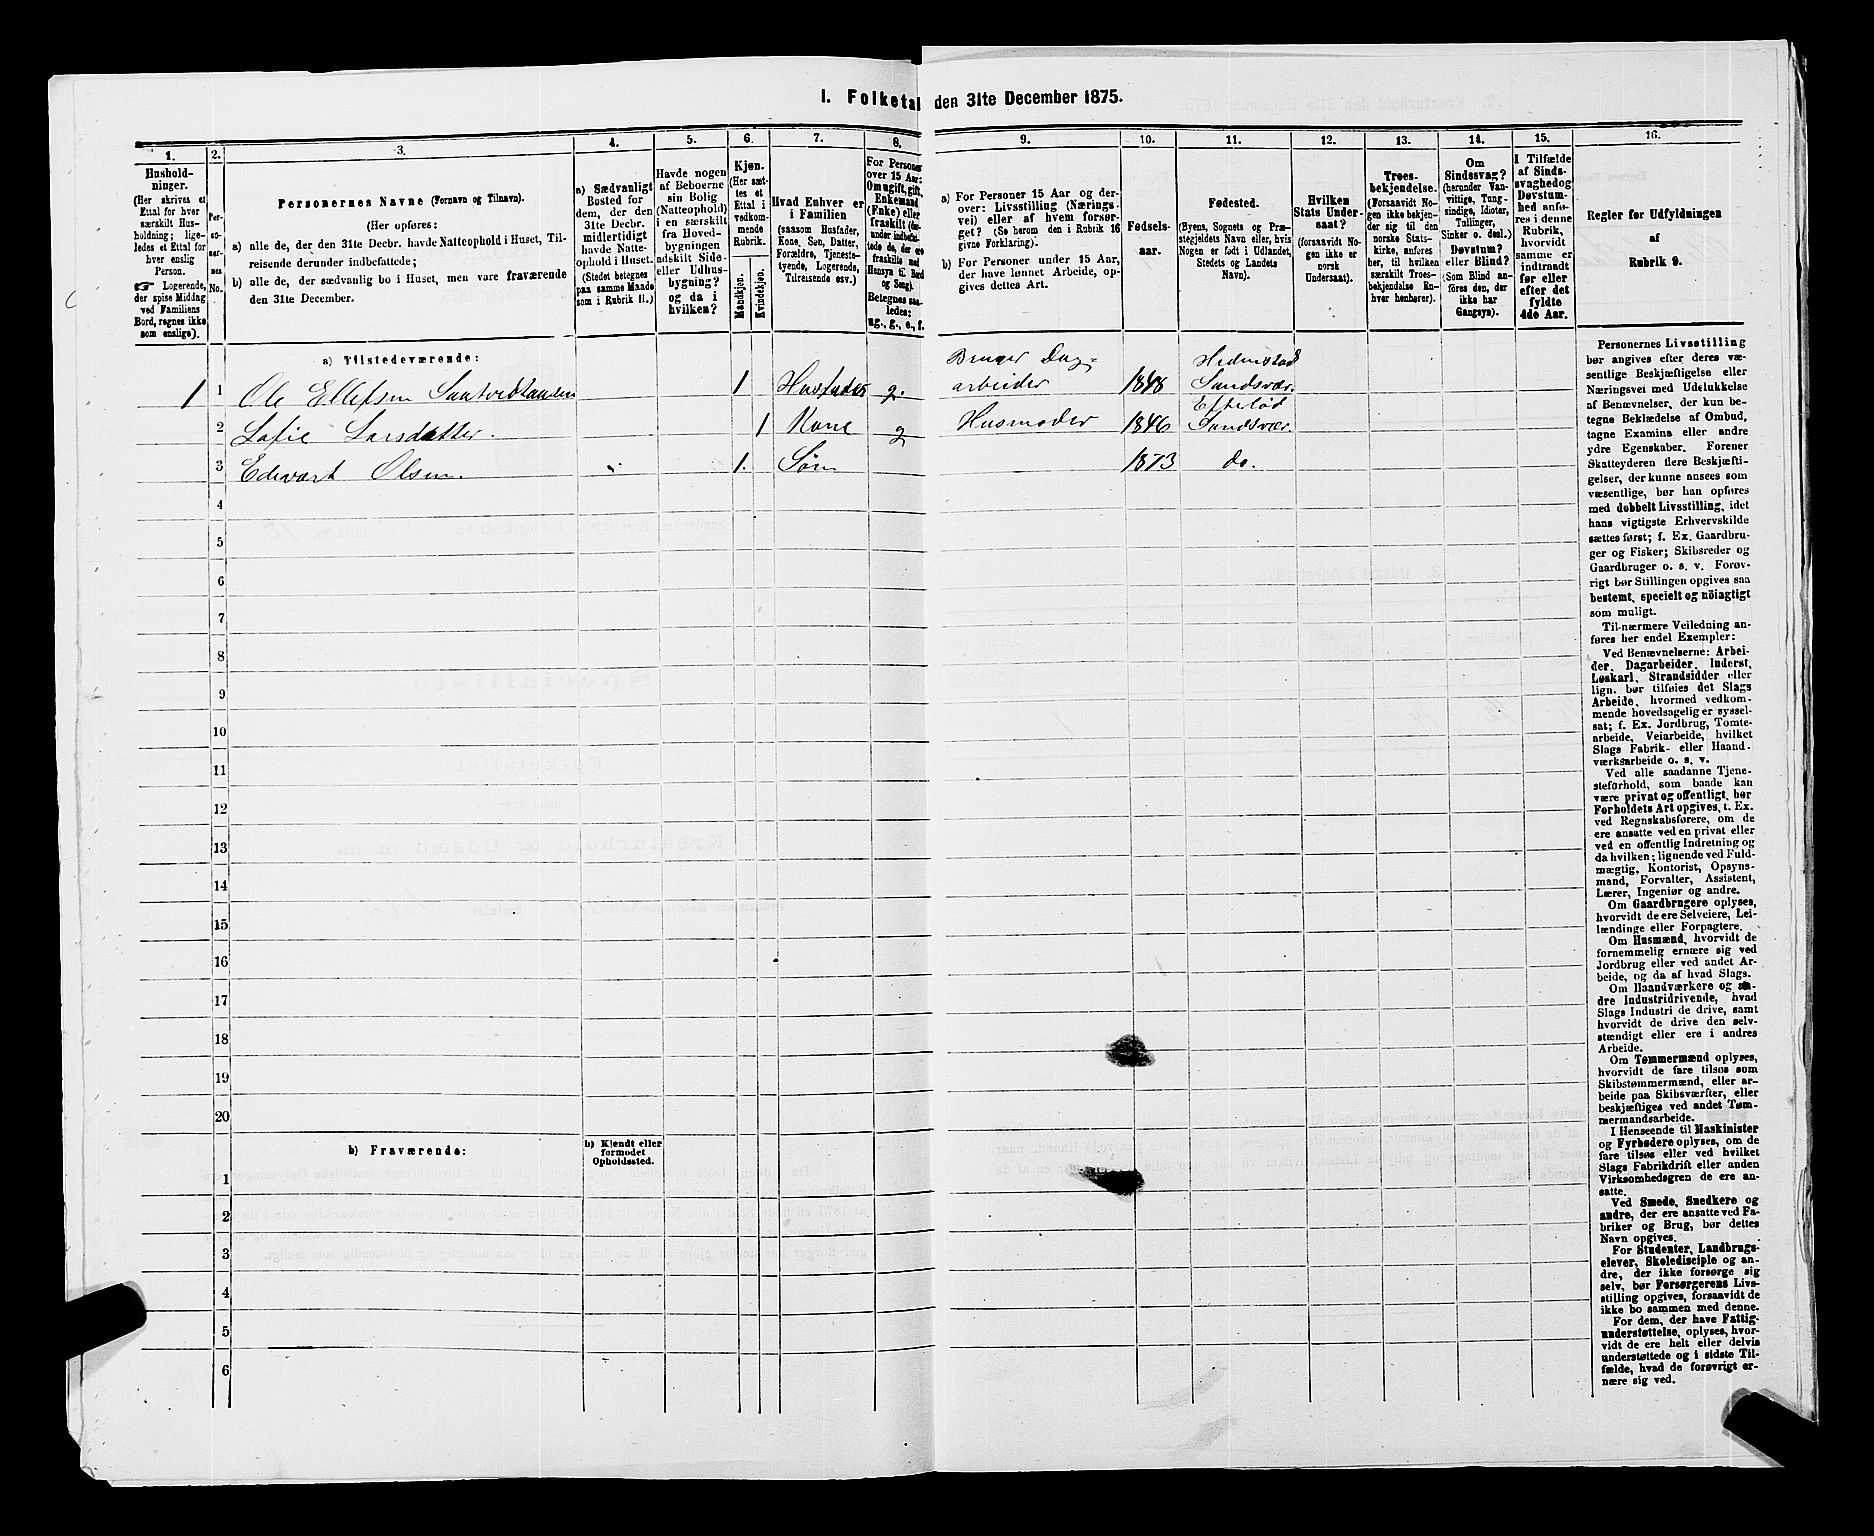 I. Folketal den 31te December 1875.
1.
Hushold-
ninger.
(Her skrives et
Ettal for hver
særskilt Hus-
holdning; lige-
ledes et Ettal for
hver enslig
Person.
☞ Logerende,
der spise Middag
ved Familiens
Bord, regnes ikke
som enslige).
2.
Per-
so-
ner-
nes
No.
3.
Personernes Navne (Fornavn og Tilnavn).
(Her opføres:
a) alle de, der den 31te Decbr. havde Natteophold i Huset, Til-
reisende derunder indbefattede;
b) alle de, der sædvanlig bo i Huset, men vare fraværende
den 31te December.
4.
a) Sædvanligt
Bosted for
dem, der den
31te Decbr.
midlertidigt
havde Natte-
ophold i Huset.
(Stedet betegnes
paa samme Maade
som i Rubrik 11.)
5.
Havde nogen
af Beboerne
sin Bolig
(Natteophold)
i en særskilt
fra Hoved-
bygningen
adskilt Side-
eller Udhus-
bygning?
og da i
hvilken?
6.
Kjøn.
(Her sæt-
tes et
Ettal i
vedkom-
mende
Rubrik.
Mandkjøn.
Kvindekjøn.
7.
Hvad Enhver er
i Familien
(saasom Husfader,
Kone, Søn, Datter,
Forældre, Tjeneste-
tyende, Logerende,
Tilreisende osv.)
8.
For Personer
over 15 Aar:
Om ugift, gift,
Enkemand
(Enke) eller
fraskilt
Betegnes saa-
ledes:
ug., g., e., f.
9.
a) For Personer 15 Aar og der-
over: Livsstilling (Nærings-
vei) eller af hvem forsør-
get? (Se herom den i Rubrik 16
givne Forklaring).
b) For Personer under 15 Aar,
der have lønnet Arbeide, op-
gives dettes Art.
10.
Fødsels-
aar.
11.
Fødested.
(Byens, Sognets og Præ-
stegjeldets Navn eller, hvis
Nogen er født i Udlandet,
Stedets og Landets
Navn).
12.
Hvilken
Stats Under-
saat?
(forsaavidt No-
gen ikke er
norsk
Undersaat).
13.
Troes-
bekjendelse.
(Forsaavidt No-
gen ikke bekjen-
der sig til den
norske Stats-
kirke, anføres
her, til hvilken
særskilt Troes-
bekjendelse En-
hver henhører).
14.
Om
Sindssvag?
(herunder Van-
vittige, Tung-
sindige, Idioter,
Tullinger,
Sinker o. desl.)
Døvstum?
eller Blind?
(Som Blind an-
føres den, der
ikke har
Gangsyn).
15.
I Tilfælde
af Sinds-
svaghed og
Døvstum-
hed anfø-
res i denne
Rubrik,
hvorvidt
samme er
indtraadt
før eller
efter det
fyldte
4de Aar.
16.
Regler for Udfyldningen
af
Rubrik 9.
a) Tilstedeværende:
1 1 Ole Ellefsen 1 Husfader g. Bruger Dag-
arbeider 1848 Hedenstad
Sandsvær.
2 Sofie Larsdatter. 1 Kone g Husmoder 1846 Eftelød
Sandsvær.
3 Edevart Olsen. 1. Søn 1873 do.
4
5
6
7
8
9
10
11
12
13
14
15
16
17
18
19
20
b) Fraværende:
b) Kjendt eller
formodet
Opholdssted.
1
2
3
4
5
6
Personernes Livsstilling
bør angives efter deres væ-
sentlige Beskjæftigelse eller
Næringsvei med Udelukkelse
af Benævnelser, der kun be-
tegne Beklædelse af Ombud,
tagne Examina eller andre
ydre Egenskaber. Forener
Skatteyderen flere Beskjæfti-
gelser, der kunne ansees som
væsentlige, bør han opføres
med dobbelt Livsstilling, idet
hans vigtigste Erhvervskilde
sættes først; f. Ex. Gaardbru-
ger og Fisker; Skibsreder og
Gaardbruger o. s. v. Forøv-
rigt bør Stillingen opgives saa
bestemt, specielt og nöiagtigt
som muligt.
Til nærmere Veiledning an-
føres her endel Exempler:
Ved Benævnelserne: Arbei-
der, Dagarbeider, Inderst,
Løskarl, Strandsidder eller
lign. bør tilføies det Slags
Arbeide, hvormed vedkom-
mende hovedsagelig er syssel-
sat; f. Ex. Jordbrug, Tomte-
arbeide, Veiarbeide, hvilket
Slags Fabrik- eller Haand-
værksarbeide o. s. v.
Ved alle saadanne Tjene-
steforhold, som baade kan
være privat og offentligt, bør
Forholdets Art opgives, t. Ex.
ved Regnskabsførere, om de
ere ansatte ved en privat eller
ved en offentlig Indretning og
da hvilken; lignende ved Fuld-
mægtig, Kontorist, Opsyns-
mand, Forvalter, Assistent,
Lærer, Ingeniør og andre.
Om Gaardbrugere oplyses,
hvorvidt de ere Selveiere, Lei-
lændinge eller Forpagtere.
Om Husmænd, hvorvidt de
fornemmelig ernære sig ved
Jordbrug eller ved andet Ar-
beide, og da af hvad Slags.
Om Haandværkere og an-
dre Industridrivende, hvad
Slags Industri de drive, samt
hvorvidt de drive den selv-
stændigt eller ere i andres
Arbeide.
Om Tømmermænd oplyses,
hvorvidt de fare tilsøs som
Skibstømmermænd, eller ar-
beide paa Skibsværfter, eller
beskjæftiges ved andet Tøm-
mermandsarbeide.
I Henseende til Maskinister
og Fyrbødere oplyses, om de
fare tilsøs eller ved hvilket
Slags Fabrikdrift eller anden
Virksomhedsgren de ere an-
satte.
Ved Smede, Snedkere og
andre, der ere ansatte ved Fa-
briker og Brug, bør dettes
Navn opgives.
For Studenter, Landbrugs-
elever, Skoledisciple og an-
dre, der ikke forsørge sig
selv, bør Forsørgerens Livs-
stilling opgives, forsaavidt de
ikke bo sammen med denne.
For dem, der have Fattig-
understøttelse, oplyses, hvor-
vidt de ere helt eller delvis
understøttede og i sidste Til-
fælde, hvad de forøvrigt er-
nære sig ved.